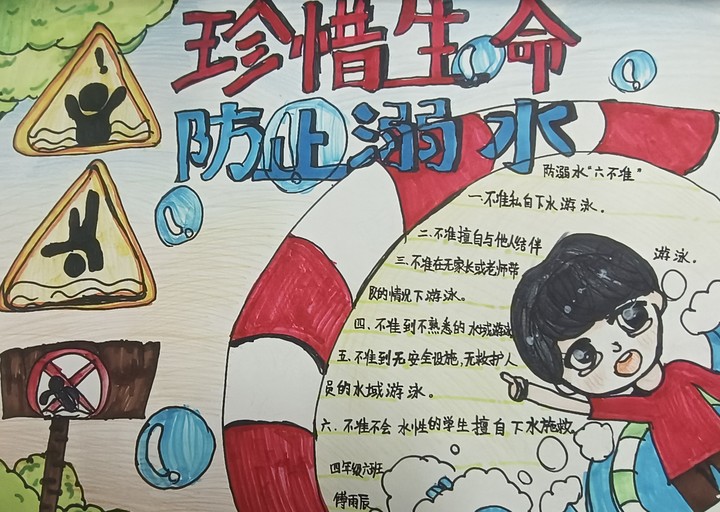 珍惜生命
防止溺水
防溺水"六不准"
一不准私自下水游泳.
二.不准擅自与他人结伴
游泳.
三.不准在无家长或老师带
队的情况下游泳.
四.不准到不熟悉的水域游泳
五.不准到无安全设施,无救护人
员的水域游泳.
六.不准不会水性的学生擅自下水施救
四年级六班
傅雨辰